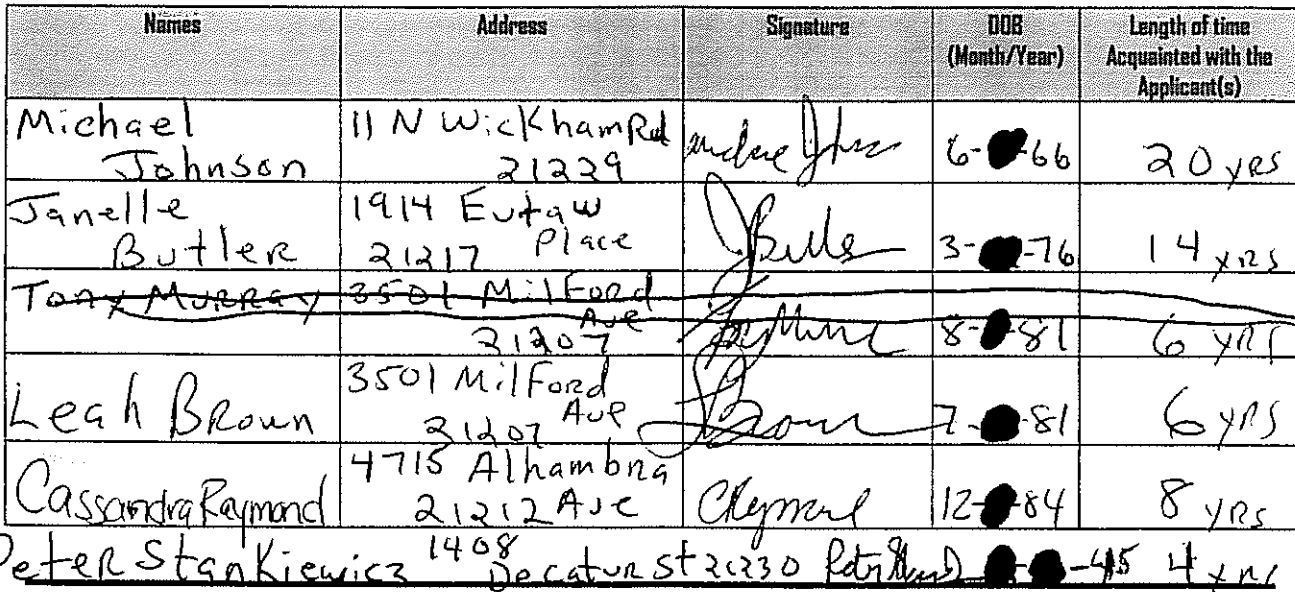 Names Address Signature DOB (Month/Year) Length of time Acquainted with the Applicant(s)
Michael Johnson 11 N Wickham Rd 21229 6- -66 20 yrs
Janelle Butler 1914 Eutaw Place 21217 JButler 3- -76 14 yrs
Tony Murray 3501 Milford Ave 21207 8- -81 6 yrs
Leah Brown 3501 Milford Ave 21207 LBrown 7- -81 6 yrs
Cassandra Raymond 4715 Alhambra Ave 21212 CRaymond 12- -84 8 yrs
Peter Stankiewicz 1408 Decatur St 21230 - -45 4 yrs